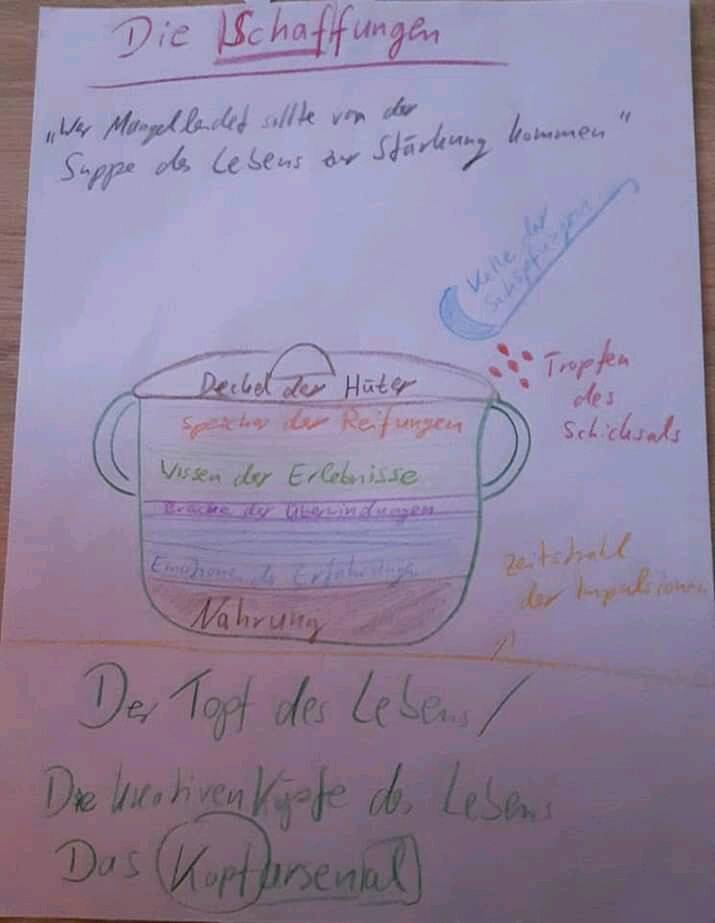 Die Schaffungen
„Wer Mangel leidet sollte von der
Suppe des Lebens zur Stärkung kommen"
Kelle der
Schöpfungen
Deckel der Hüter
Tropfen
des
Schicksals
Speicher der Reifungen
Wissen der Erlebnisse
Brücke der Überwindungen
Emotionen der Erfahrungen
Zeitstrahl
der Impulsionen
Nahrung
Der Topf des Lebens/
Die kreativen Köpfe des Lebens
Das Kopfarsenal